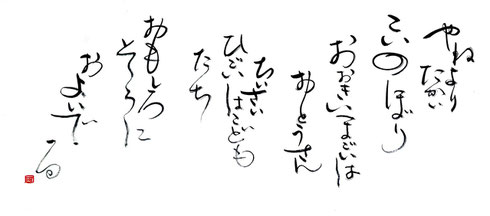 やねより
たかい
こいのぼり
おおきいまごいは
おとうさん
ちいさい
ひごいはこども
たち
おもしろ
そうに
およいで
る